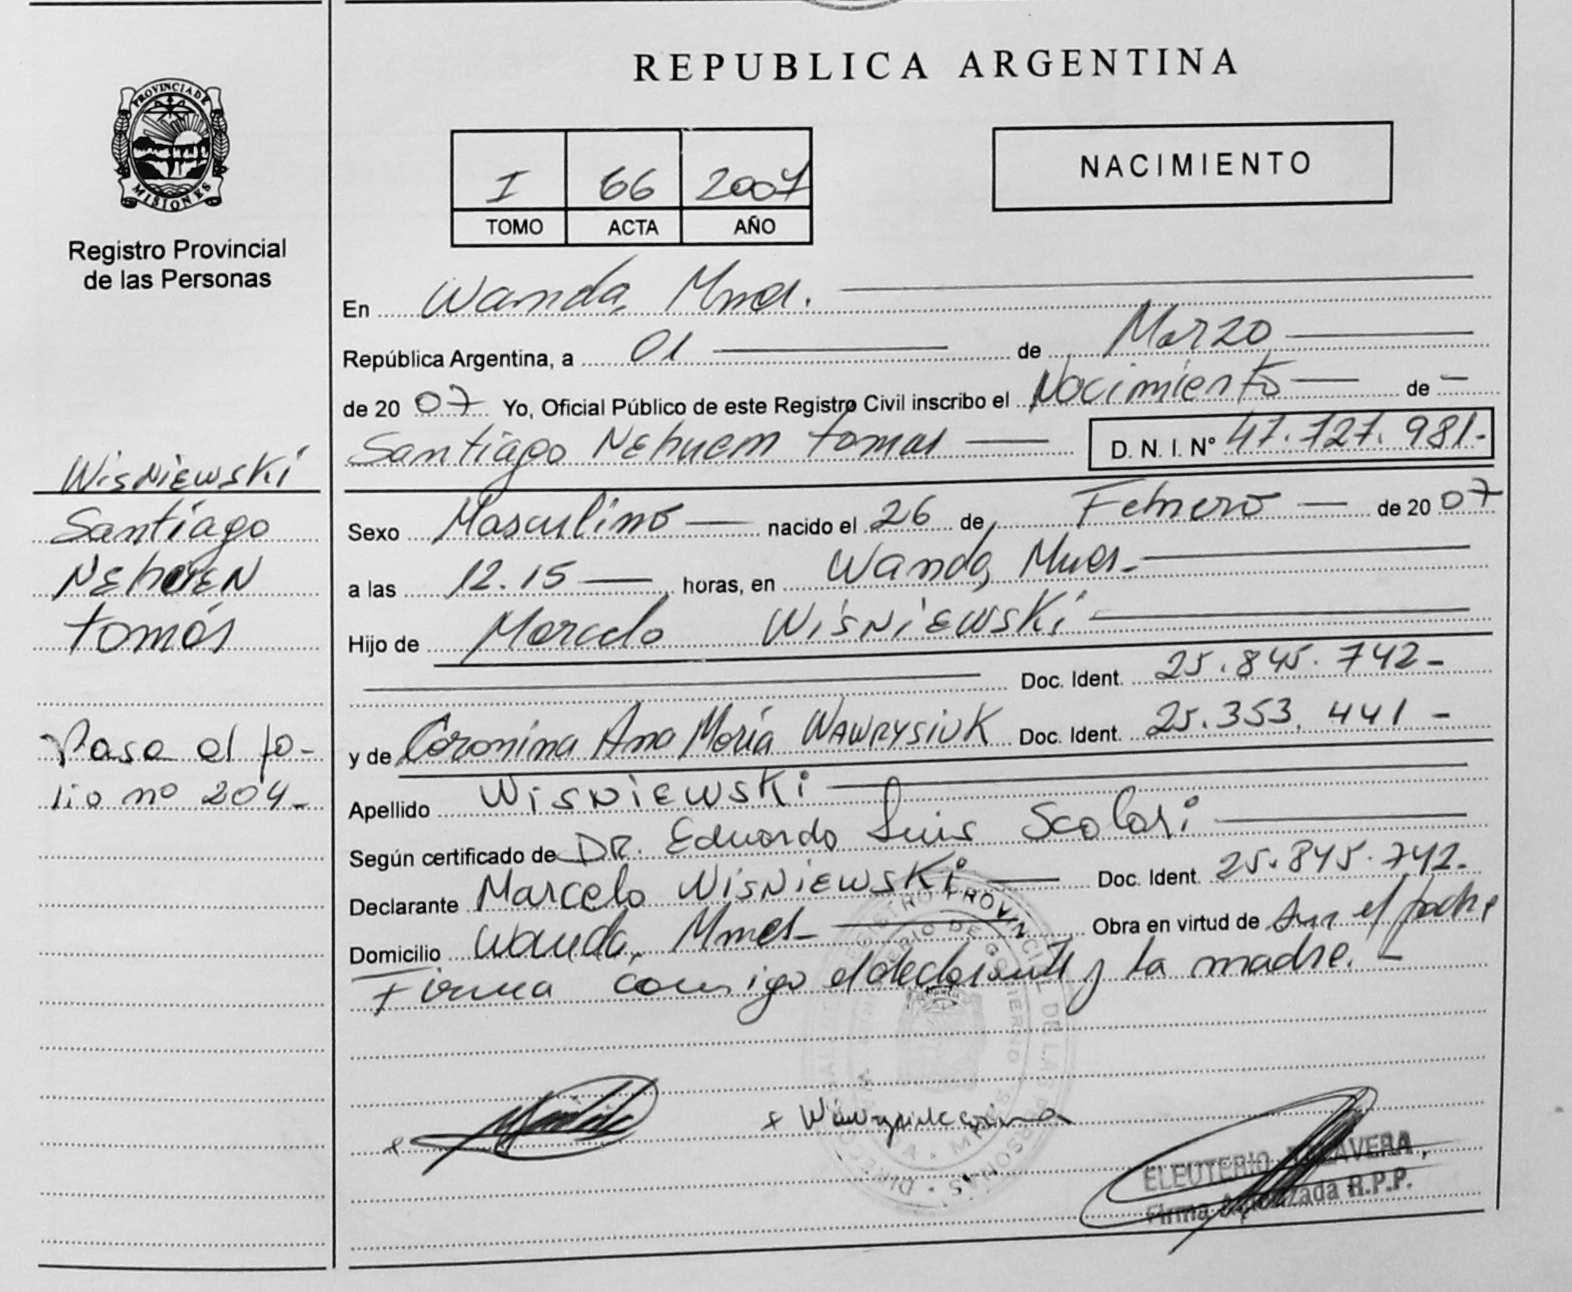 REPUBLICA ARGENTINA
PROVINCIA DE
MISIONES
Registro Provincial
de las Personas
I 66 2007
TOMO ACTA AÑO
NACIMIENTO
En Wanda, Mnes.
República Argentina, a 01 de Marzo
de 2007 Yo, Oficial Público de este Registro Civil inscribo el Nacimiento de
Santiago Nehuem tomas D. N. I. Nº 47.727.981.-
Wisniewski
Santiago
Nehuen
tomás
Pasa al fo-
lio nº 204-
Sexo Masculino nacido el 26 de Febrero de 2007
a las 12.15 horas, en Wanda, Mnes-
Hijo de Marcelo Wisniewski
Doc. Ident. 25.845.742-
y de Coronina Ana María WAWRYSIUK Doc. Ident. 25.353.441-
Apellido Wisniewski
Según certificado de DR. Eduardo Luis Scolari
Declarante Marcelo Wisniewski Doc. Ident. 25.845.742-
Domicilio Wanda, Mnes- Obra en virtud de Ser el padre
Firma conmigo el declarante y la madre.
ELEUTERIO TALAVERA
Firma Autorizada R.P.P.